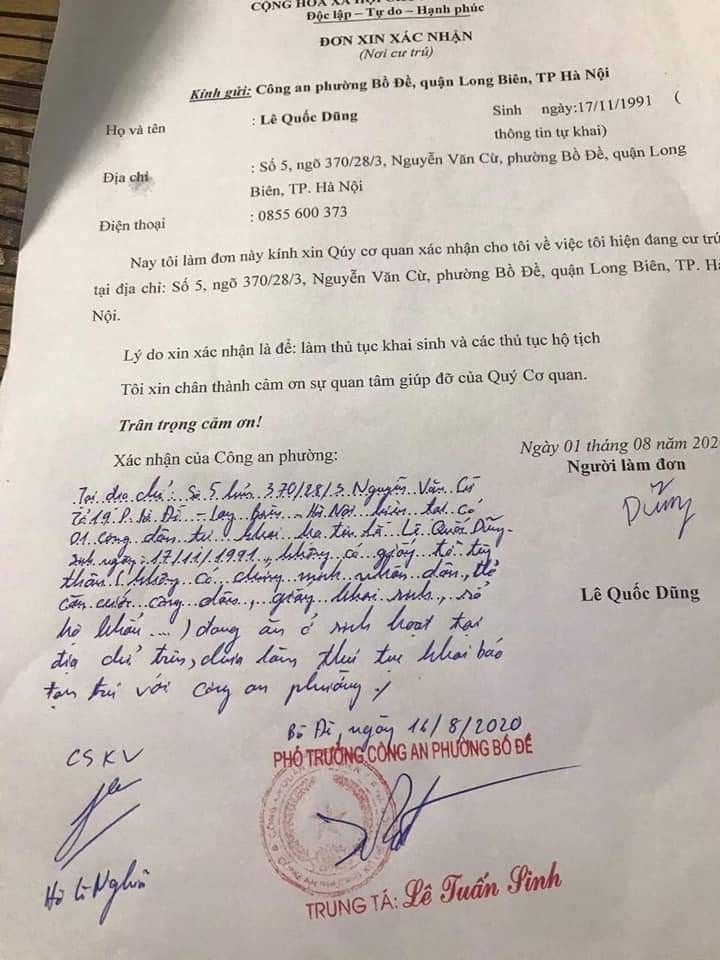 CỘNG HÒA XÃ HỘI
Độc lập – Tự do – Hạnh phúc
ĐƠN XIN XÁC NHẬN
(Nơi cư trú)
Kính gửi: Công an phường Bồ Đề, quận Long Biên, TP Hà Nội
Họ và tên : Lê Quốc Dũng Sinh ngày:17/11/1991 (
thông tin tự khai)
Địa chỉ : Số 5, ngõ 370/28/3, Nguyễn Văn Cừ, phường Bồ Đề, quận Long
Biên, TP. Hà Nội
Điện thoại : 0855 600 373
Nay tôi làm đơn này kính xin Qúy cơ quan xác nhận cho tôi về việc tôi hiện đang cư trú
tại địa chỉ: Số 5, ngõ 370/28/3, Nguyễn Văn Cừ, phường Bồ Đề, quận Long Biên, TP. Hà
Nội.
Lý do xin xác nhận là để: làm thủ tục khai sinh và các thủ tục hộ tịch
Tôi xin chân thành cảm ơn sự quan tâm giúp đỡ của Quý Cơ quan.
Trân trọng cảm ơn!
Xác nhận của Công an phường:
Ngày 01 tháng 08 năm 202
Người làm đơn
Dũng
Lê Quốc Dũng
Tại địa chỉ: Số 5 370/28/3 Nguyễn Văn Cừ
Tổ 19 P. Bồ Đề - Long Biên - Hà Nội hiện tại có
01 công dân tự khai họ tên là Lê Quốc Dũng
sinh ngày: 17/11/1991, không có giấy tờ tùy
thân (không có chứng minh nhân dân, thẻ
căn cước công dân, giấy khai sinh, sổ
hộ khẩu ...) đang ăn ở sinh hoạt tại
địa chỉ trên, chưa làm thủ tục khai báo
tạm trú với công an phường ./
Bồ Đề, ngày 16/8/2020
CSKV
PHÓ TRƯỞNG CÔNG AN PHƯỜNG BỒ ĐỀ
TRUNG TÁ: Lê Tuấn Sinh